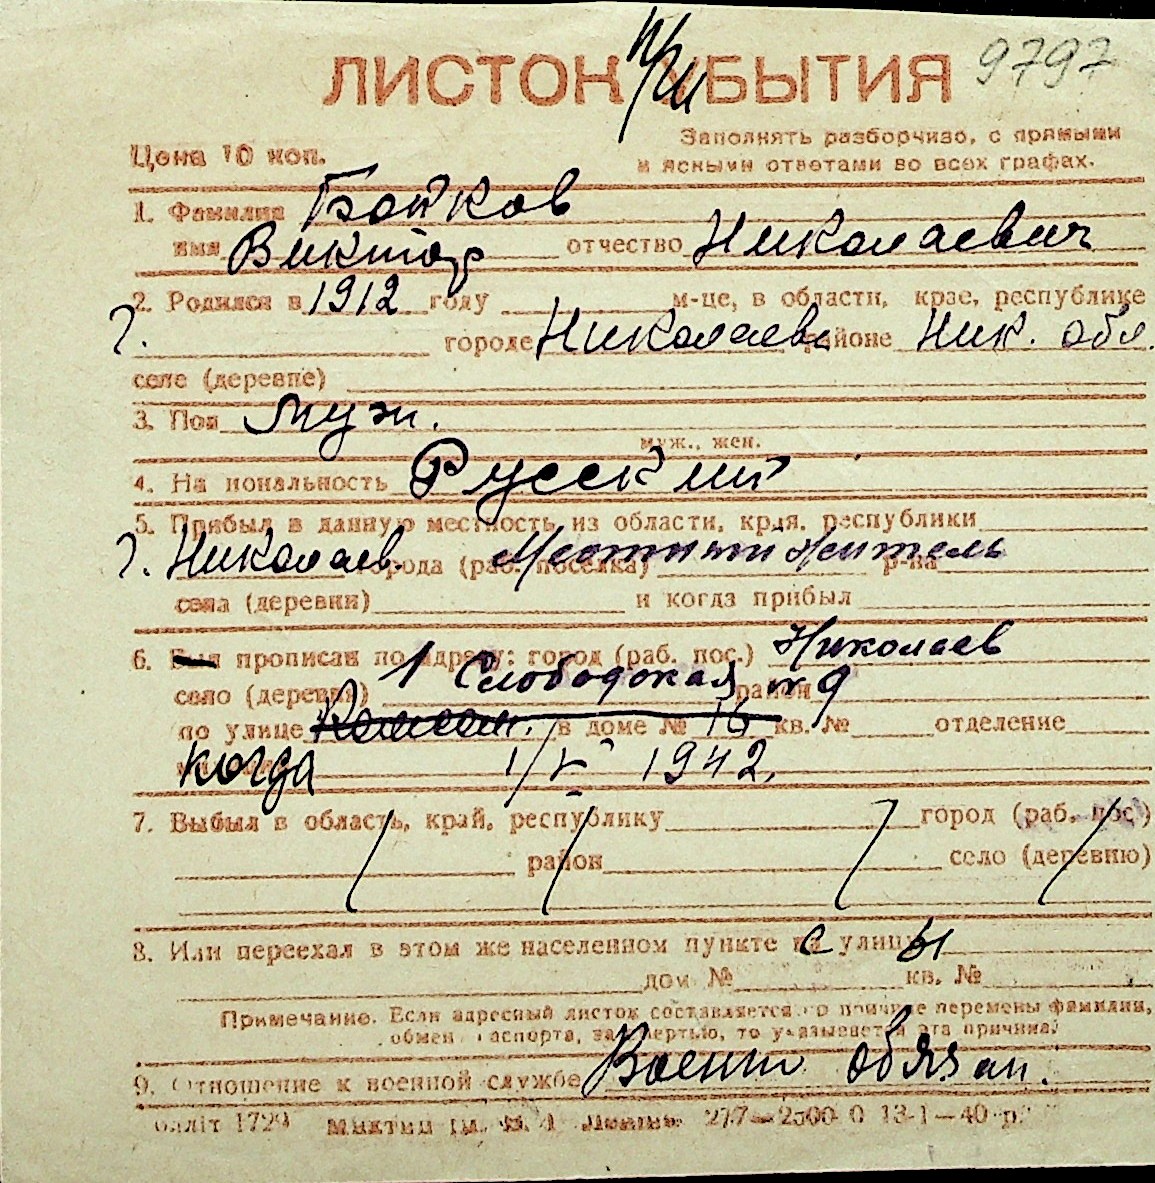 ЛИСТОК УБЫТИЯ 9797
Цена 10 коп.
Заполнять разборчиво, с прямыми
и ясными ответами во всех графах.
1. Фамилия Бойков
имя Виктор отчество Николаевич
2. Родился в 1912 году м-це, в области, крае, республике
г. городе Николаеве районе Ник. обл.
селе (деревне)
3. Пол муж.
муж., жен.
4. Национальность Русский
5. Прибыл в данную местность из области, края, республики
г. Николаев. города (раб. поселка) Местный житель р-на
села (деревни) и когда прибыл
6. Был прописан по адресу: город (раб. пос.) Николаев
село (деревня) 1 Слободская № 9 район
по улице в доме № 16 кв. № отделение
когда 1/V 1942.
7. Выбыл в область, край, республику город (раб. пос.)
район село (деревню)
8. Или переехал в этом же населенном пункте с улицы
дом № кв. №
Примечание. Если адресный листок составляется по причине перемены фамилии,
обмен паспорта, за смертью, то указывается эта причина.
9. Отношение к военной службе Военно обязан.
1729 27.7—2500 0 13-1—40 р.